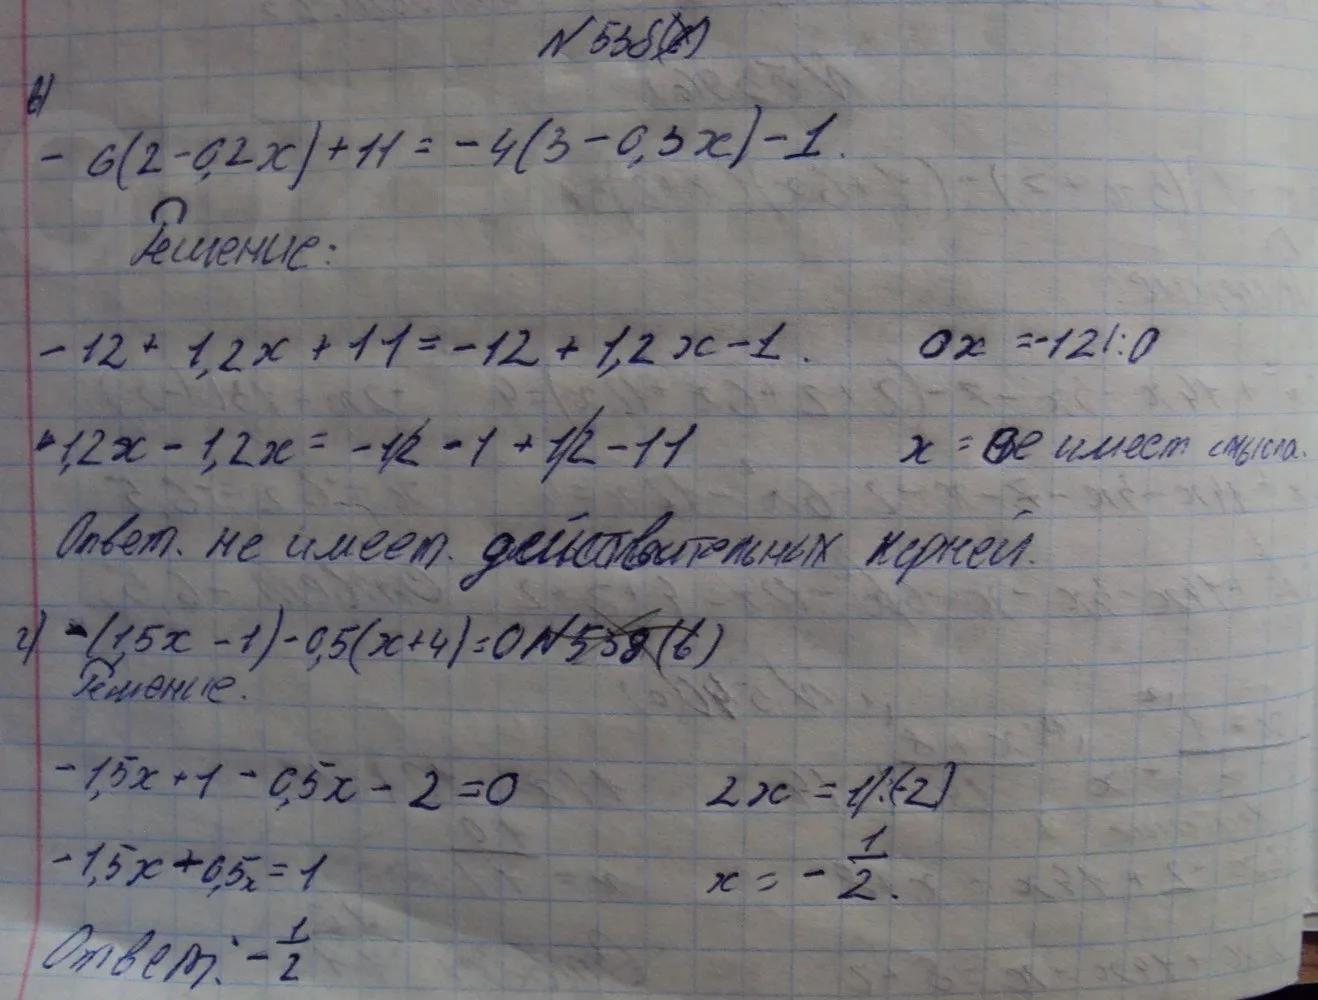 N 538
в)
- 6(2-0,2x)+11 = -4(3-0,3x)-1.
Решение:
-12 + 1,2x + 11 = -12 + 1,2x - 1. 0x = -12 |:0
1,2x - 1,2x = -12 - 1 + 12 - 11 x = не имеет смысла.
Ответ. не имеет. действительных корней.
г) -(1,5x - 1) - 0,5(x+4) = 0 N 538 (в)
Решение.
-1,5x + 1 - 0,5x - 2 = 0 2x = 1 |:(-2)
-1,5x + 0,5x = 1 x = - 1/2.
Ответ: - 1/2